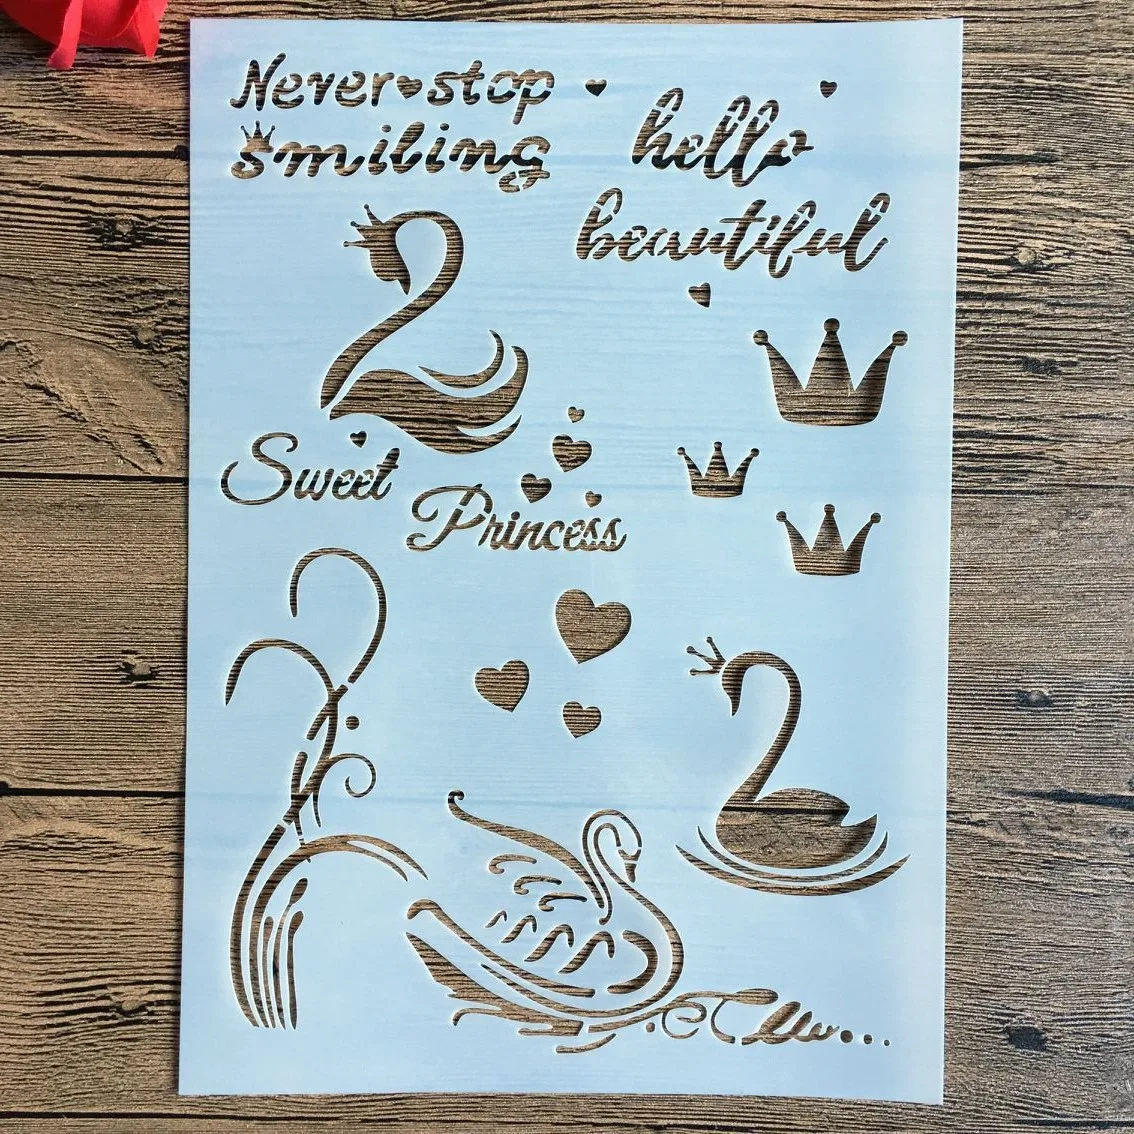 Never stop
smiling
hello
beautiful
Sweet
Princess